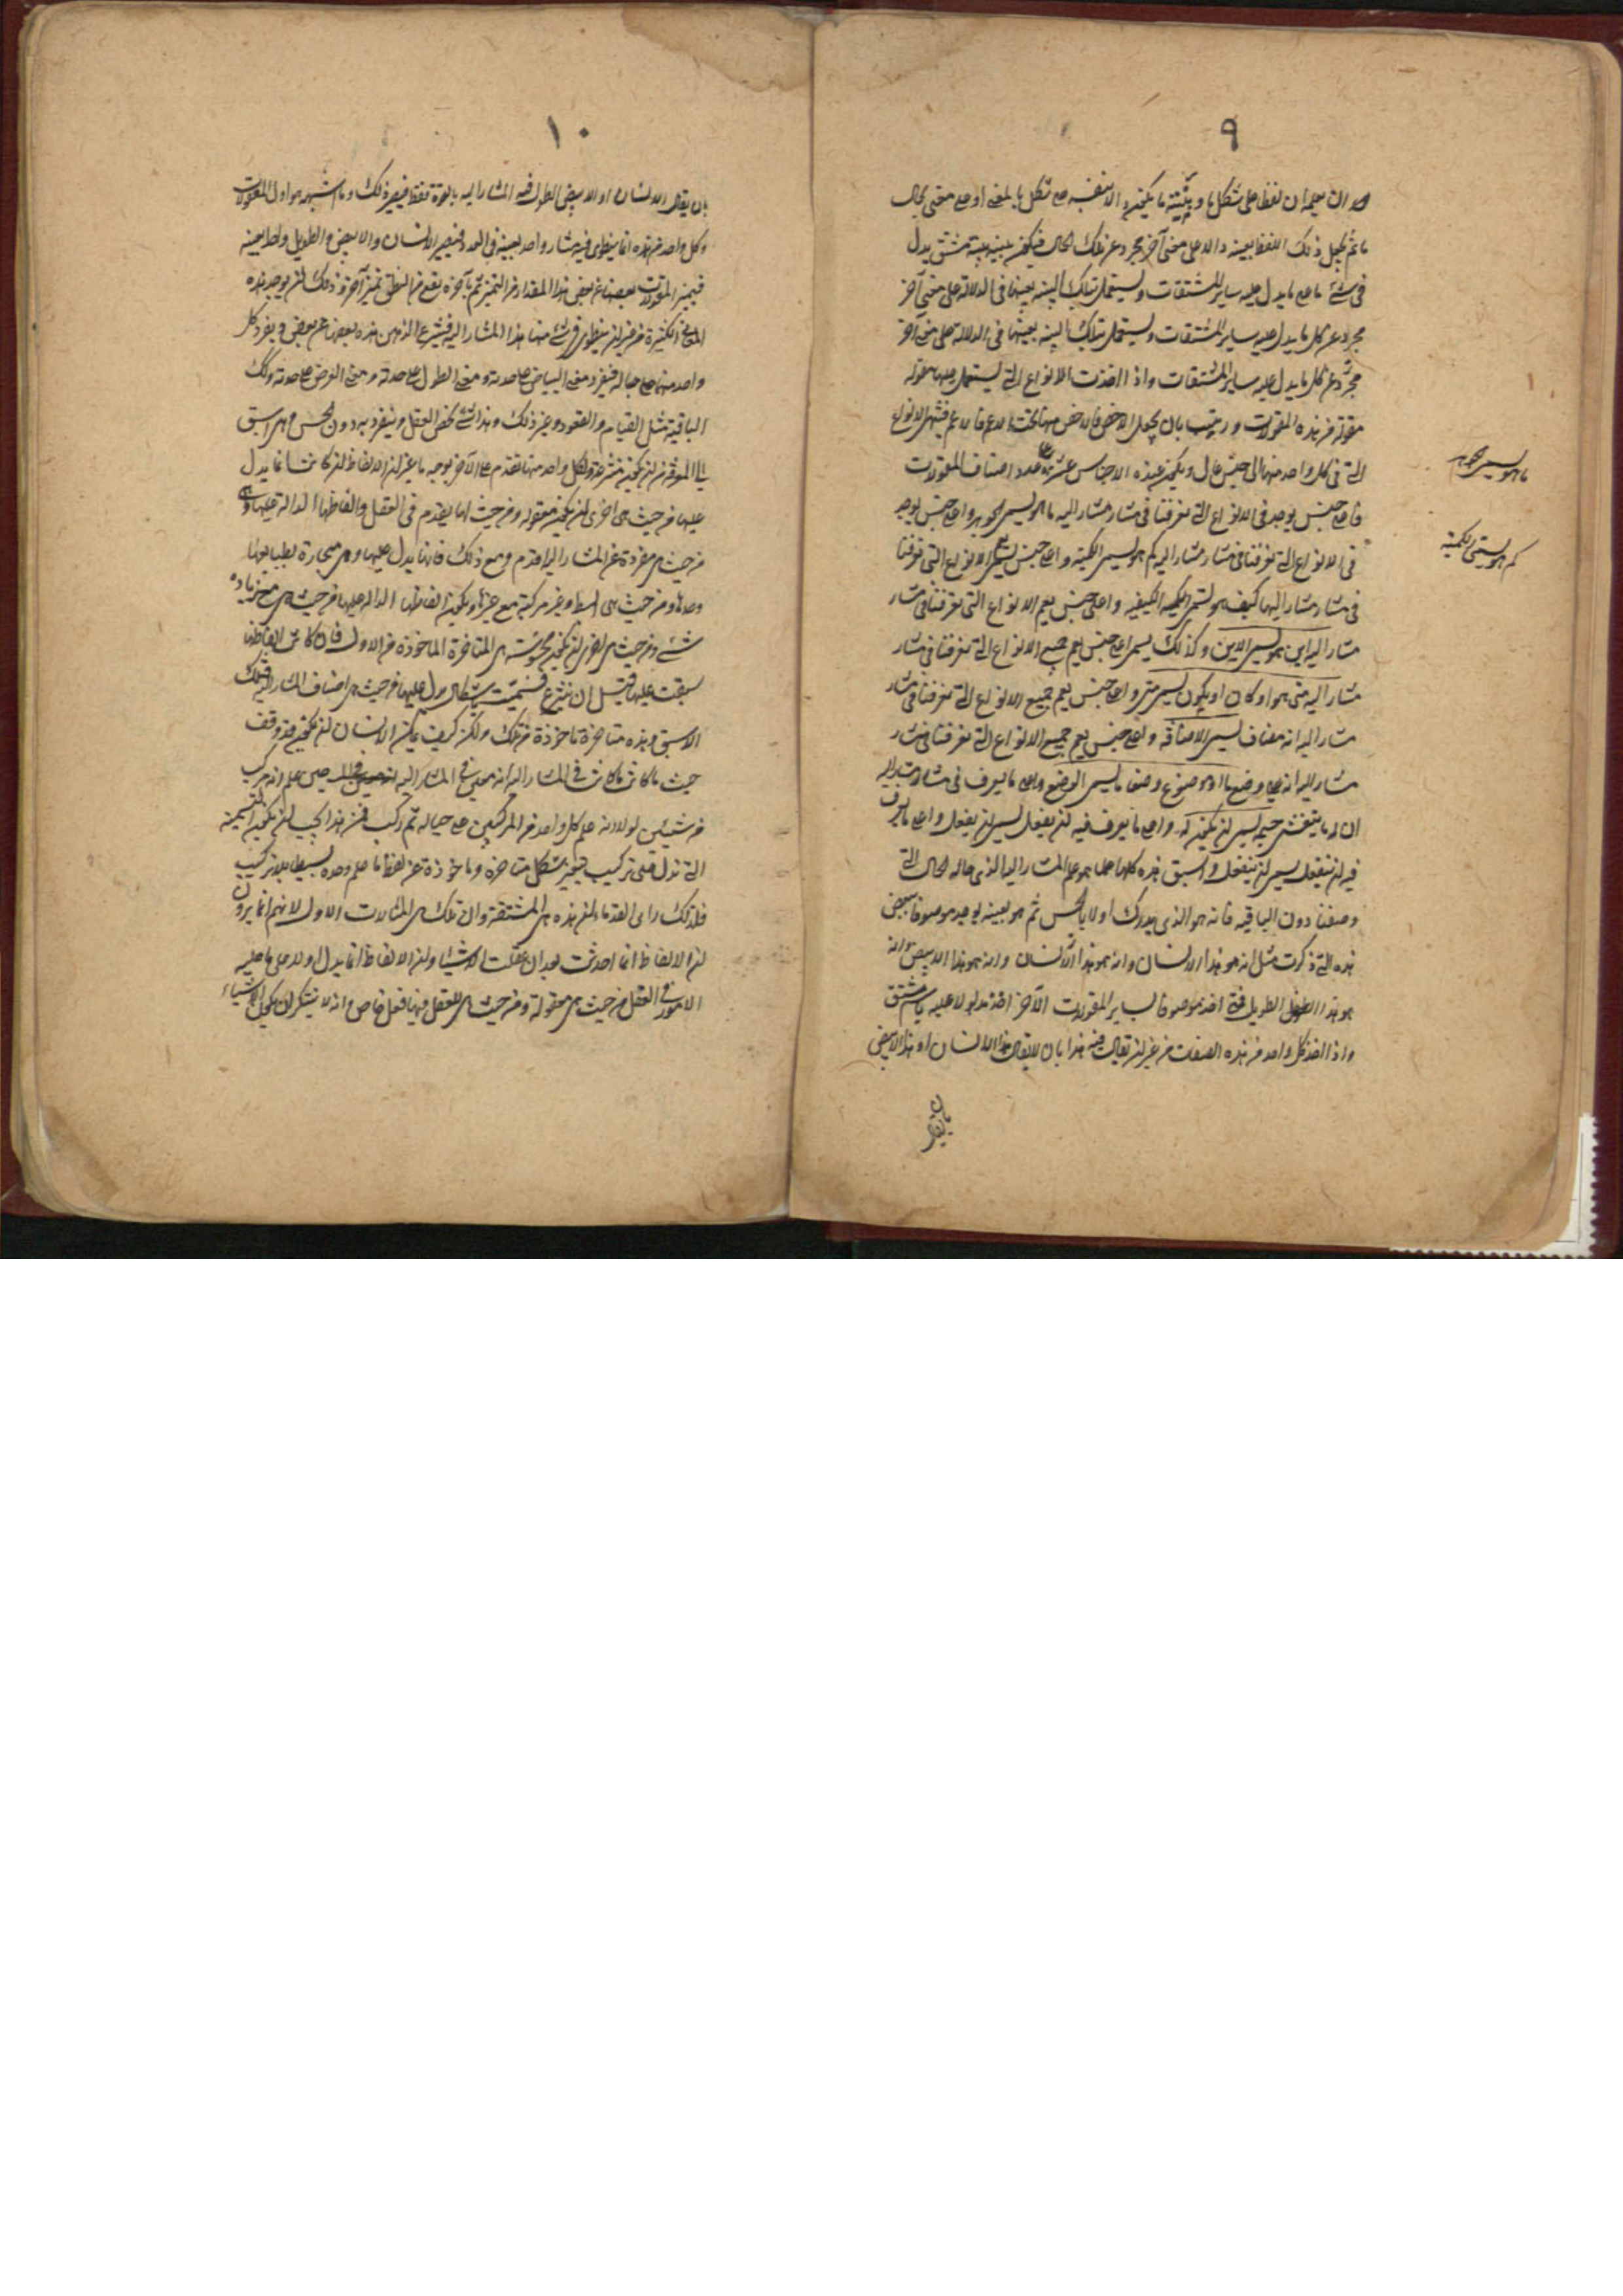 ٩
ما ثم يجعل ذلك اللفظ بعينه دالا على معنى آخر مجرد عن تلك الحال فيكون بنية مشتق يدل
في شئ ما على ما يدل عليه ساير المشتقات ويستعمل تلك البنية بعينها في الدلالة على معنى آخر
مجرد عن كل ما يدل عليه ساير المشتقات ويستعمل تلك البنية بعينها في الدلالة على معنى آخر
مجرد عن كل ما يدل عليه ساير المشتقات واذا اخذت الانواع التي يستعمل عليها مقولة
مقولة من هذه المقولات ورتبت بان يجعل الاخص فالاخص منها تحت الاعم فالاعم فينتهى الانواع
التي في كل واحد منها الى جنس عال ويكون عدة الاجناس عشرة على عدد اصناف المقولات
فاعلى جنس يوجد في الانواع التي تعرفنا في مشار مشار اليه ما هو يسمى الجوهر واعلى جنس يوجد
في الانواع التي تعرفنا في مشار مشار اليه كم هو يسمى الكمية واعلى جنس يعم الانواع التي تعرفنا
في مشار مشار اليه كيف هو يسمى الكيفية واعلى جنس يعم الانواع التي تعرفنا في مشار
مشار اليه اين هو يسمى الاين وكذلك يسمى اعلى جنس يعم جميع الانواع التي تعرفنا في مشار
مشار اليه متى هو او كان او يكون يسمى متى واعلى جنس يعم جميع الانواع التي تعرفنا في مشار
مشار اليه انه مضاف يسمى الاضافة واعلى جنس يعم جميع الانواع التي تعرفنا في مشار
مشار اليه انه على وضع ما او موضوع وضعا ما يسمى الوضع واعلى ما يعرف في مشار مشار اليه
ان له ما يتغشى جسمه يسمى ان يكون له واعلى ما يعرف فيه ان يفعل يسمى ان يفعل واعلى ما يعرف
فيه ان ينفعل يسمى ان ينفعل واسبق هذه كلها علما هو علم المشار اليه الذي حاله الحال التي
وصفنا دون الباقية فانه هو الذي يدرك اولا بالحس ثم هو بعينه يوجد موصوفا ببعض
هذه التي ذكرت مثل انه هو هذا الانسان وانه هو هذا الانسان وانه هو هذا الابيض وانه
هو هذا الطويل اخذ موصوفا بساير المقولات الآخر اخذ مدلولا عليه باسم مشتق
واذا اخذ كل واحد من هذه الصفات من غير ان يقال فيه هذا بان لا يقال هذا الانسان او هذا الابيض
بان يقال
ما هو يسمى جوهر
كم هو يسمى الكمية
١٠
بان يقال الانسان او الابيض الطويل فيه المشار اليه بالقوة فقط فيصير ذلك وما اشبهه هو اول المعقولات
وكل واحد من هذه انما ينطوي فيه مشار واحد بعينه في العدد فيصير الانسان والابيض والطويل واحدا بعينه
فيميز المقولات بعضها عن بعض هذا المقدار من التميز ثم بآخرة يقع من النطق تميز آخر وذلك ان يوجد هذه
المعاني الكثيرة من غير ان ينطوي في شئ منها هذا المشار اليه فينتزع الذهن هذه بعضها عن بعض ويفرد كل
واحد منها على حياله فيفرد معنى البياض على حدته ومعنى الطول على حدته ومعنى العرض على حدته وكذلك
الباقية مثل القيام والقعود وغير ذلك وهذا شئ يخص العقل وينفرد به دون الحس وهي اسبق
عليها من حيث هي اخرى ان يكون معقوله ومن حيث انها يتقدم في العقل والفاظها الدالة عليها
من حيث هي مفردة عن المشار اليه اقدم ومع ذلك فانها يدل عليها وهي منحازة بطبايعها
وحدها ومن حيث هي ابسط وغير مركبة مع غيرها ويكون الفاظها الدالة عليها من حيث هي مع زيادة
شئ ومن حيث هي احرى ان يكون محسوسة هي المتاخرة الماخوذة من الاول فان كانت الفاظها
سبقت عليها قبل ان تنتزع فسميت باشكال يدل عليها من حيث هي اصناف المشار اليه فتلك
الاسبق وهذه متاخرة ماخوذة من تلك ولكن كيف يمكن الانسان ان يكون قد وقف
حيث ما كانت في المشار اليه انه معنى في المشار اليه حين علم انه مركب
من شيئين لولا انه علم كل واحد من المركبين على حياله ثم ركب فمن هذا يجب ان يكون التسمية
التي تدل على تركيب بتغير شكل متاخره وماخوذة عن لفظ ما علم وحده بسيطا بلا تركيب
فلذلك راى القدماء ان هذه هي المشتقة وان تلك هي المثالات الاول لانهم انما يرون
ان الالفاظ انما احدثت بعد ان عقلت الاشياء وان الالفاظ انما يدل اولا على ما عليه
الامور في العقل من حيث هي معقولة ومن حيث هي للعقل فيها فعل خاص وانه لا يستنكر ان يكون الاشياء